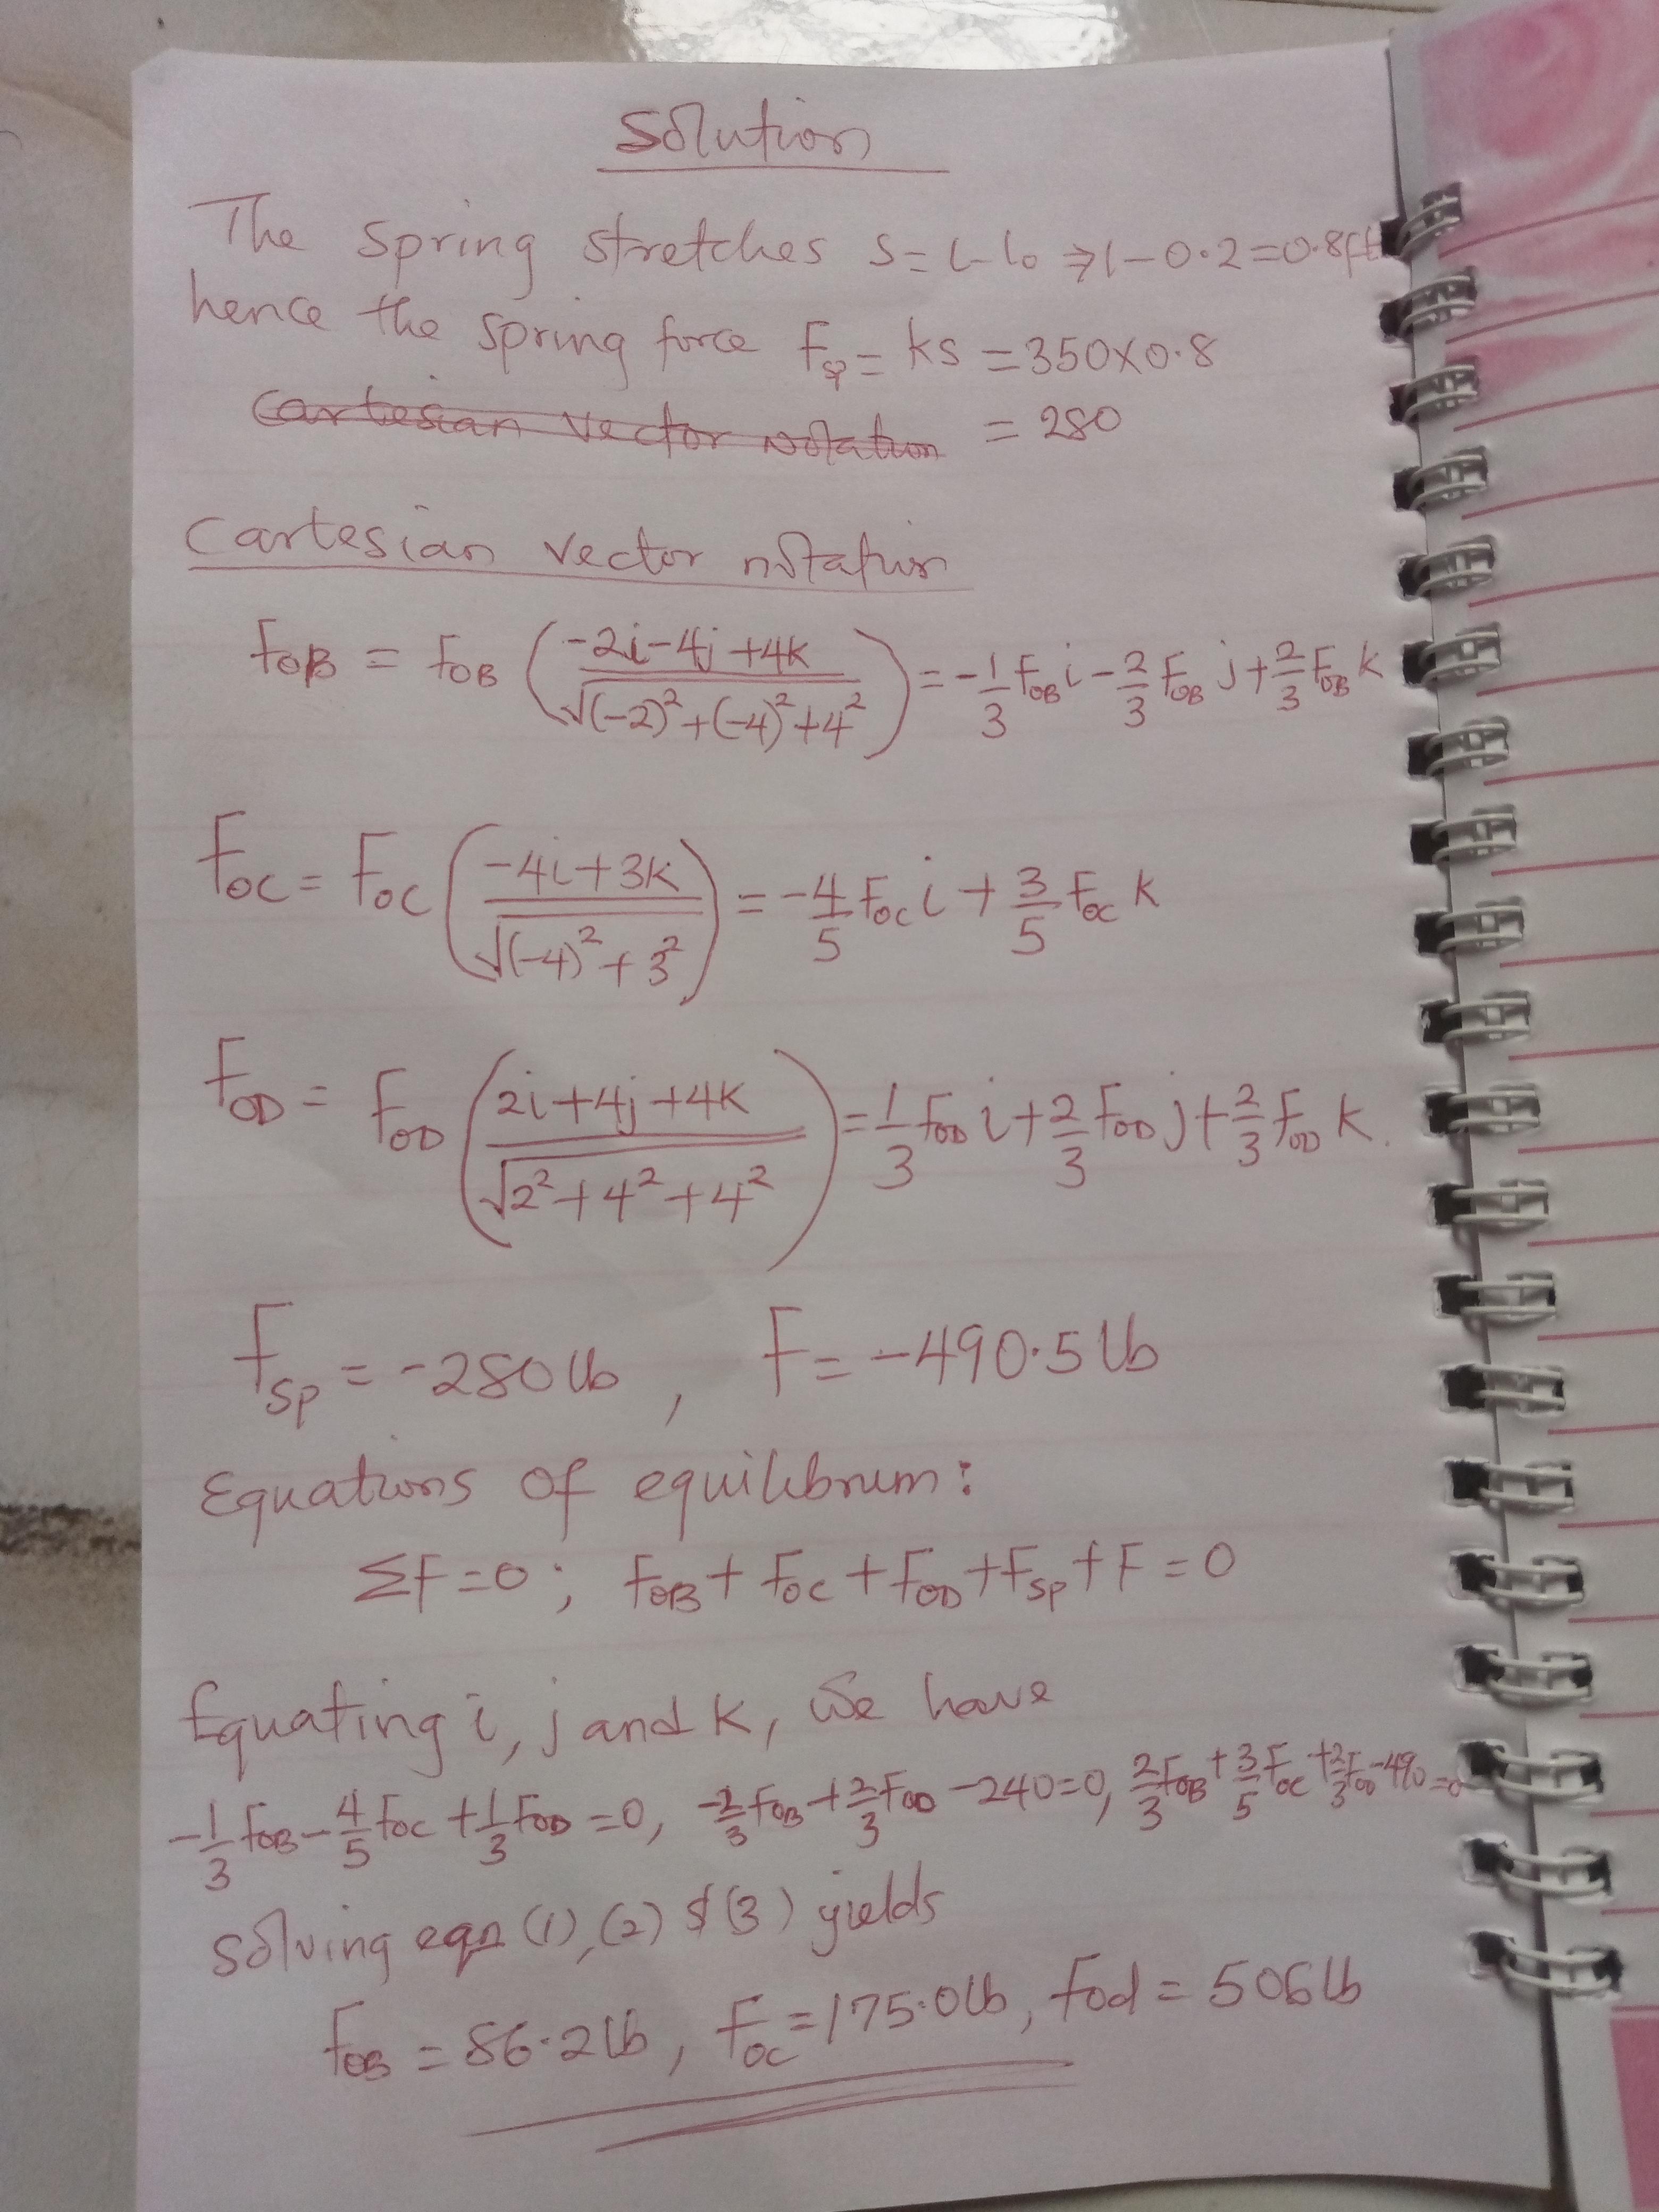 Solution
The spring stretches s = l - lo ⇒ 1 - 0.2 = 0.8ft
hence the spring force Fsp = ks = 350 x 0.8
Cartesian vector notation = 280
Cartesian vector notation
FOB = FOB ((-2i - 4j + 4k) / √((-2)² + (-4)² + 4²)) = -1/3 FOB i - 2/3 FOB j + 2/3 FOB k
FOC = FOC ((-4i + 3k) / √((-4)² + 3²)) = -4/5 FOC i + 3/5 FOC k
FOD = FOD ((2i + 4j + 4k) / √(2² + 4² + 4²)) = 1/3 FOD i + 2/3 FOD j + 2/3 FOD k.
Fsp = -280 lb, F = -490.5 lb
Equations of equilibrum:
ΣF = 0; FOB + FOC + FOD + Fsp + F = 0
Equating i, j and k, we have
-1/3 FOB - 4/5 FOC + 1/3 FOD = 0, -2/3 FOB + 2/3 FOD - 240 = 0, 2/3 FOB + 3/5 FOC + 2/3 FOD - 490 = 0
solving eqn (1), (2) & (3) yields
FOB = 86.2 lb, FOC = 175.0 lb, Fod = 506 lb